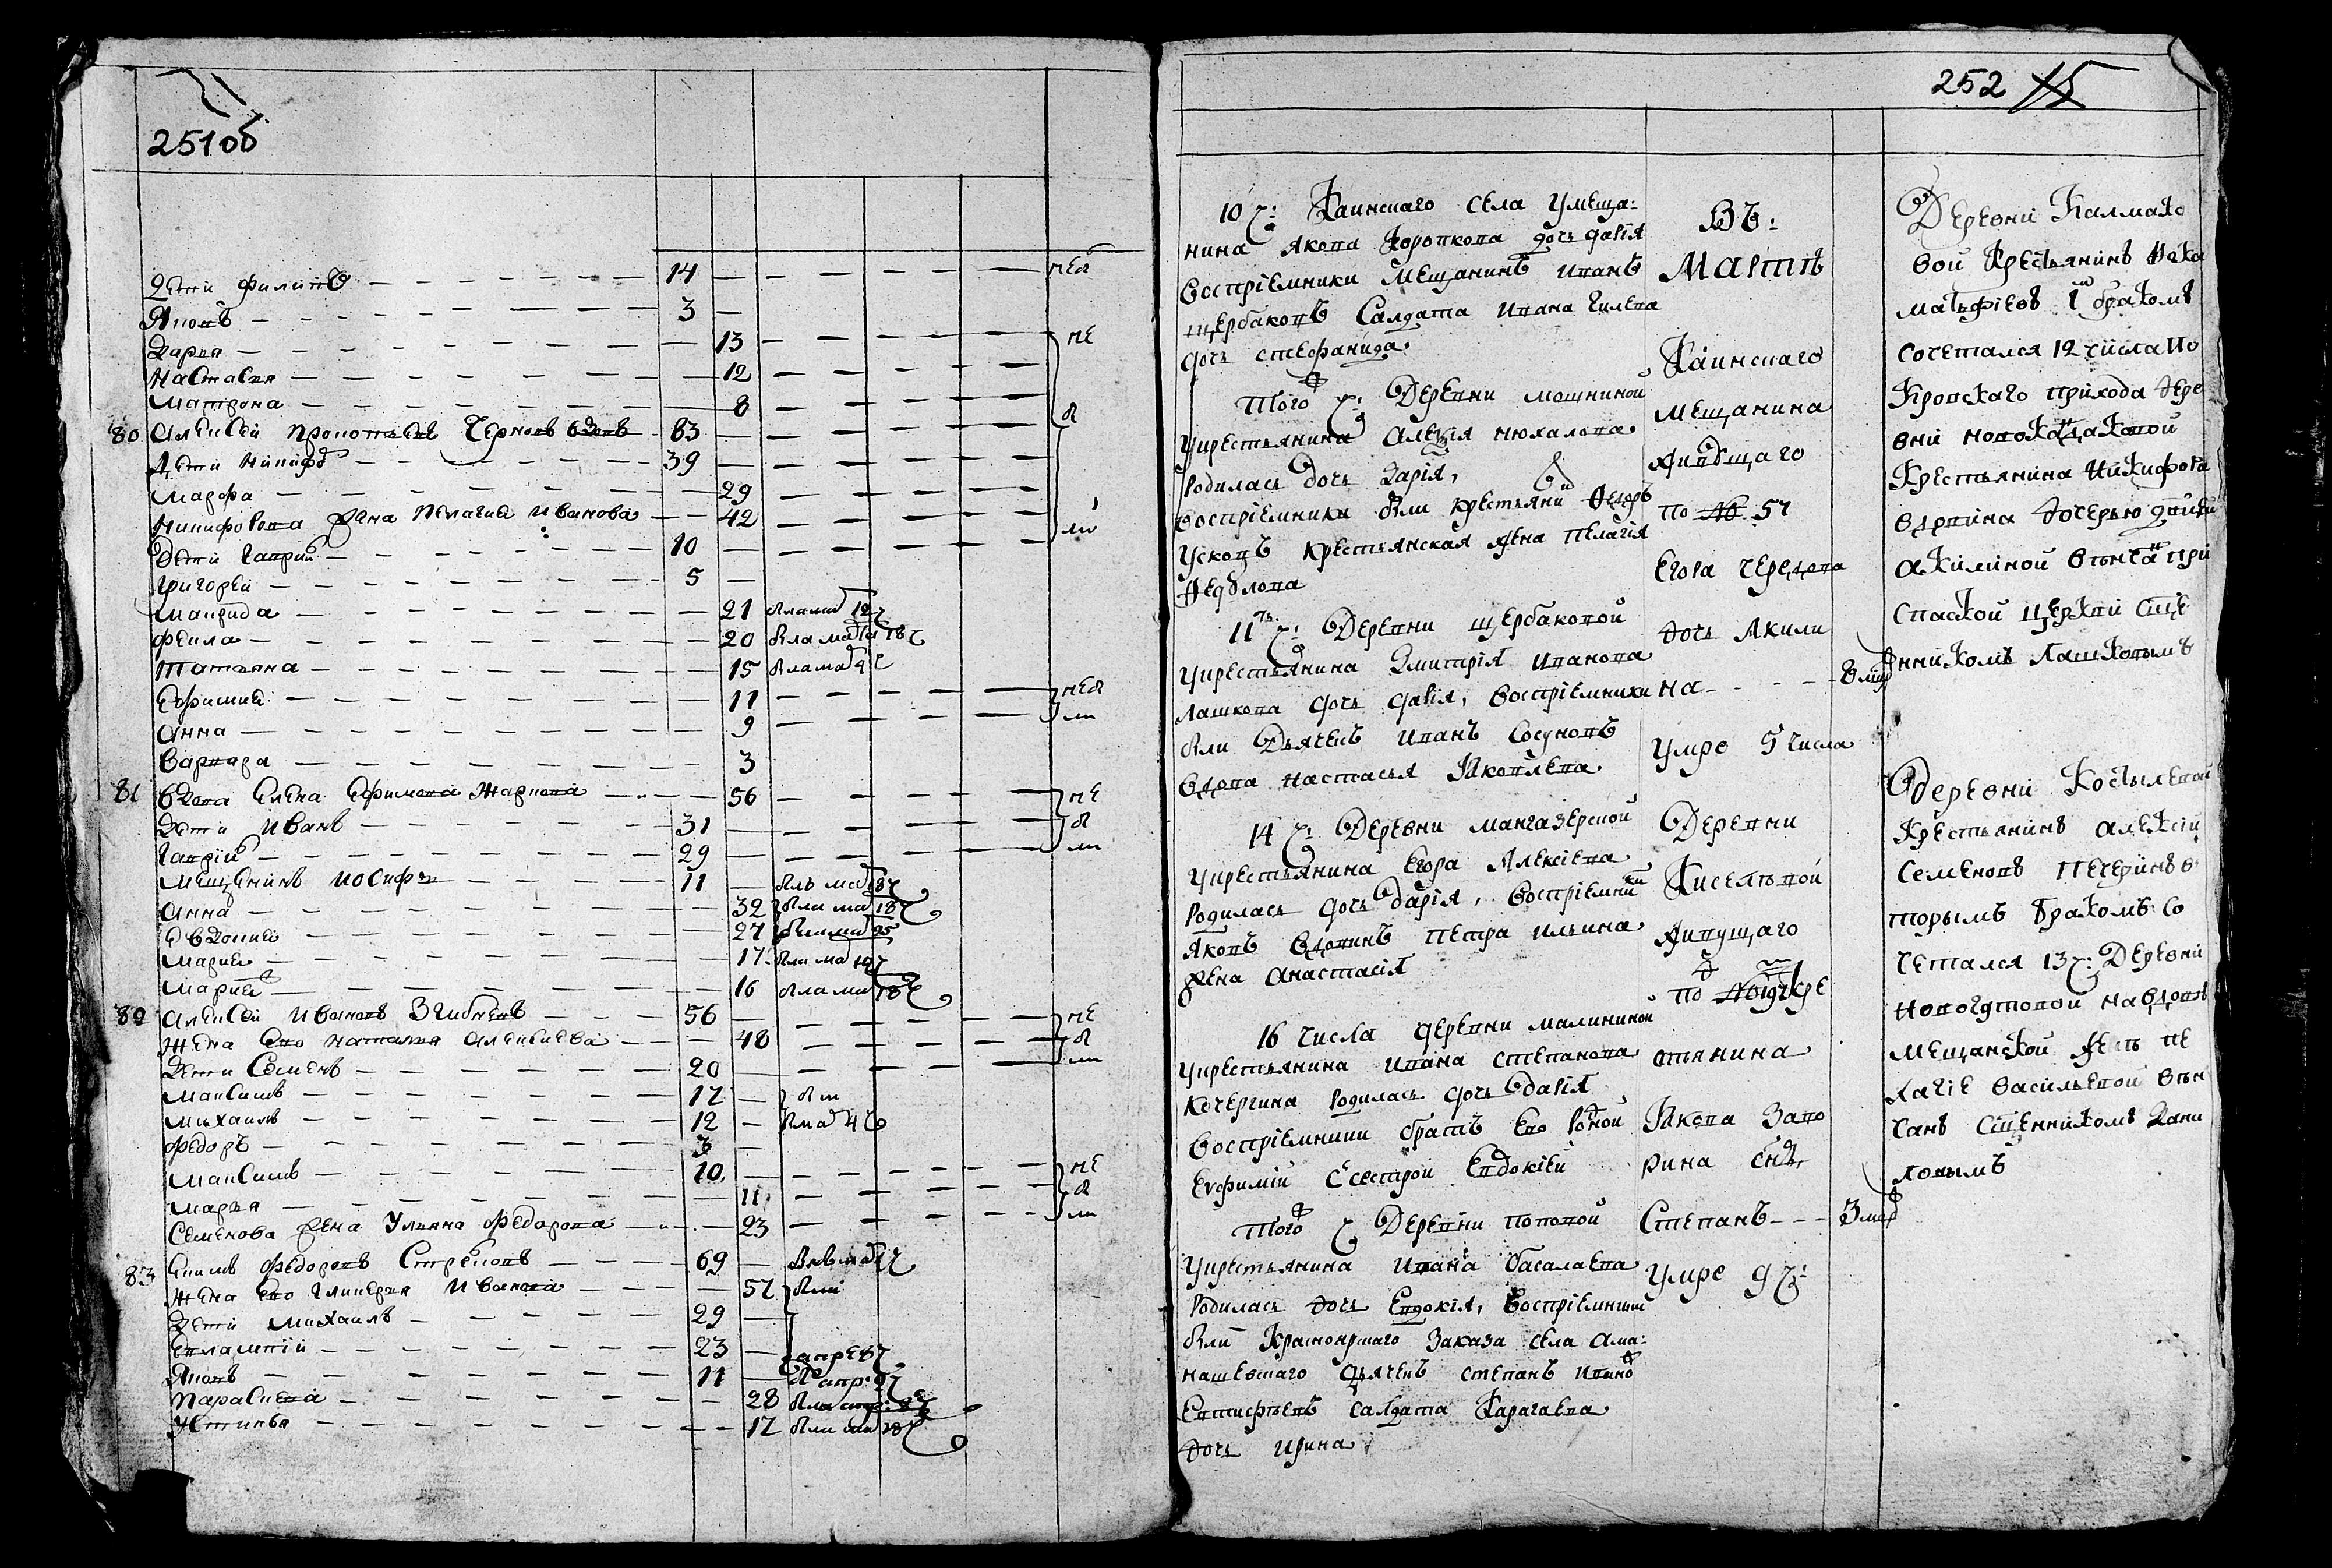 251об
Дети Филипъ 14 небы
Яковъ 3
Дарья 13 не
Настасья 12
Матрона 8 бы
80 Алексей Прокопьевъ Черновъ вдовъ 63
Дети Никифоръ 39
Марфа 29
Никифорова жена Пелагия Иванова 42 ли
Дети Гаврии 10
Григорей 5
Манрида 21 была мар 12 ч
Феила 20 была мар 18 ч
Татьяна 15 была мар 4 ч
Ефимия 11 небы
Анна 9 ли
Варвара 3
81 Вдова Елена Ефимова Жарнова 56 не
Дети Иванъ 31 бы
Гаврии 29 ли
Мещенинъ Иосифъ 11 былъ мар 18 ч
Анна 32 была мар 18 ч
Евдокия 27 была мар 25
Мария 17 была мар
Мария 16 была мар 18 ч
82 Алексей Ивановъ 56 не
Жена ево Наталья Алексиева 48 бы
Дети Семенъ 20 ли
Максимъ 17 бы
Михаилъ 12 мар 4 ч
Федоръ 3
Максимъ 10 не
Марья 11 бы
Семенова жена Ульяна Федорова 23 ли
83 Екимъ Федоровъ 69 былъ мар
Жена ево Гликерья Иванова 57 были
Дети Михаилъ 29
Евлампий 23 апре 8 ч
Яковъ 11 апр: 9 ч
Парасковия 28 была
Устинья 17 была мар 28 ч
252 15
10 ч: Каинскаго села умеща:
нина Якова Коропкова дочь Дарія
Воспріемники мещанинъ Иванъ
щербаковъ Салдата Ивана Гилева
дочь Стефанида
Того ч: Деревни мошниной
укрестьянина Алексія Мохалова
родилась дочь Дарія,
воспріемники были крестьянинъ Федоръ
Усковъ крестьянская жена Пелагія
Федулова
11 ч: Деревни щербаковой
укрестьянина Димитрія Иванова
Лашкова дочь Дарія, воспріемники
были Дьячекъ Иванъ Сосуновъ
вдова Настасья Яковлева
14 ч: Деревни мангазерской
укрестьянина Егора Алексіева
родилась дочь Дарія, воспріемники
Яковъ вдовинъ Петра Ильина
жена Анастасія
16 числа деревни малининой
укрестьянина Ивана Степанова
Кочергина родилась дочь Дарія
Воспріемники братъ ево родной
Евфимій Ссестрой Евдокіей
Того ч Деревни поповой
укрестьянина Ивана басалаева
родилась дочь Евдокія, воспріемники
были Краснояршаго заказа села Ама:
нашевшаго дьячекъ Степанъ Ивано
Евтифьевъ салдата Карагаева
дочь Ирина
Въ:
Мартѣ
Каинскаго
мещанина
живущаго
по № 57
Егора Чередова
дочь Акили
на 8 мар
умре 5 числа
Деревни
Киселевой
живущаго
по № кре
стянина
Якова Запо
рина сынъ
Степанъ 3 мар
умре 9 ч:
Деревни Калмако
вой крестьянинъ Иска
матьфіевъ 1 бракомъ
сочетался 12 числа По
кровскаго прихода дере
вни новокандаковой
крестьянина Никифора
вдовина дочерью девкой
Акилиной венчанъ при
Спаской церкви Сще
нникомъ Лашковымъ
деревни Костылевай
крестьянинъ Алексій
Семеновъ Печеринъ в
торымъ бракомъ со
четался 13 ч: Деревни
новогутовой на вдове
мещанской жене Пе
лагіе Васильевой вен
чанъ Сщенникомъ Дани
ловымъ